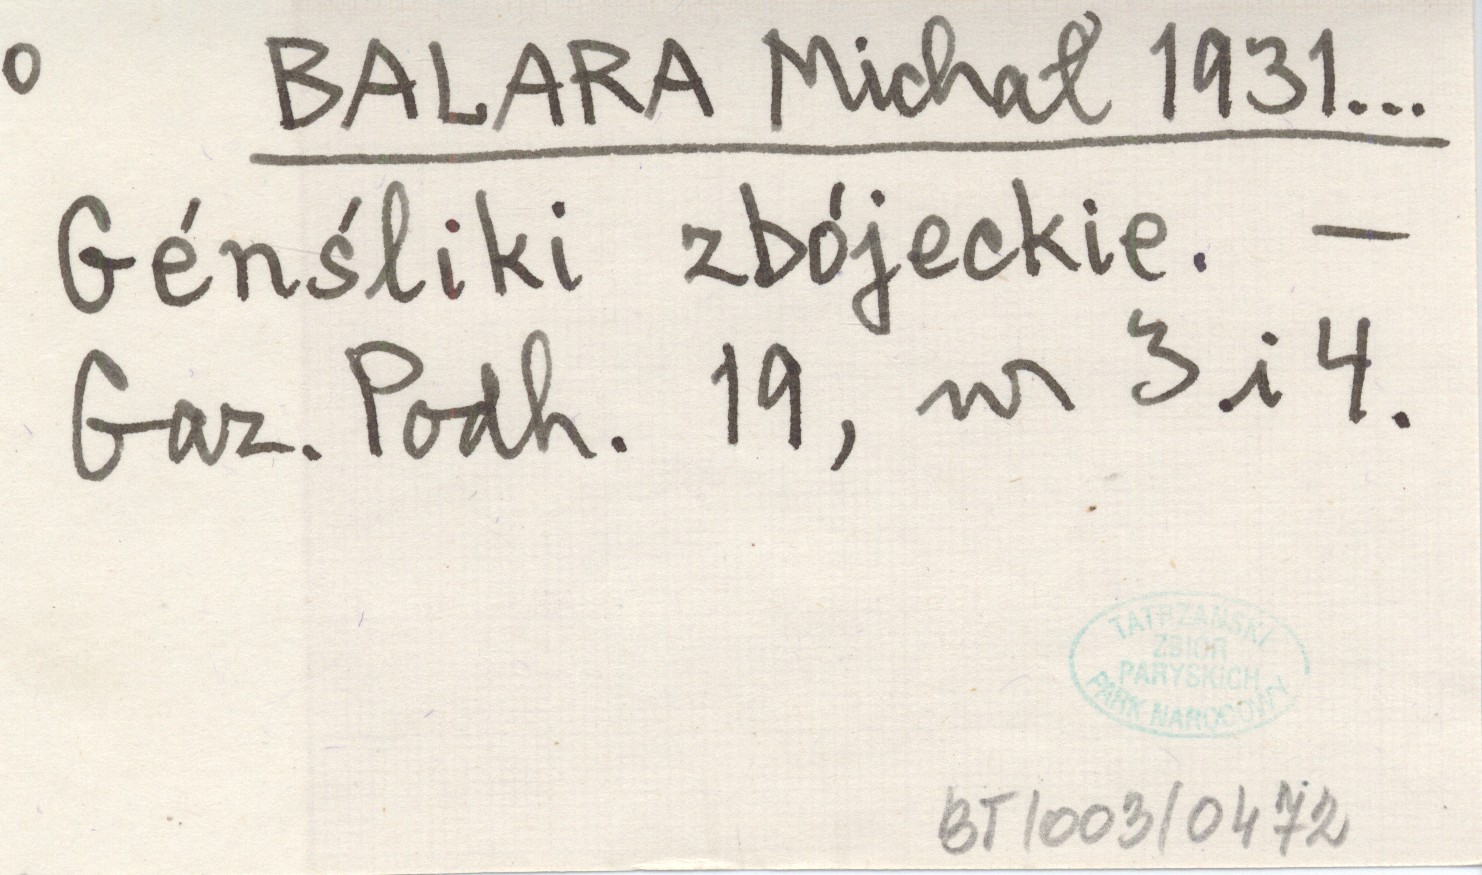 o BALARA Michał 1931...
Génśliki zbójeckie. —
Gaz. Podh. 19, nr 3 i 4.
TATRZAŃSKI
ZBIÓR
PARYSKICH
PARK NARODOWY
BT/003/0472